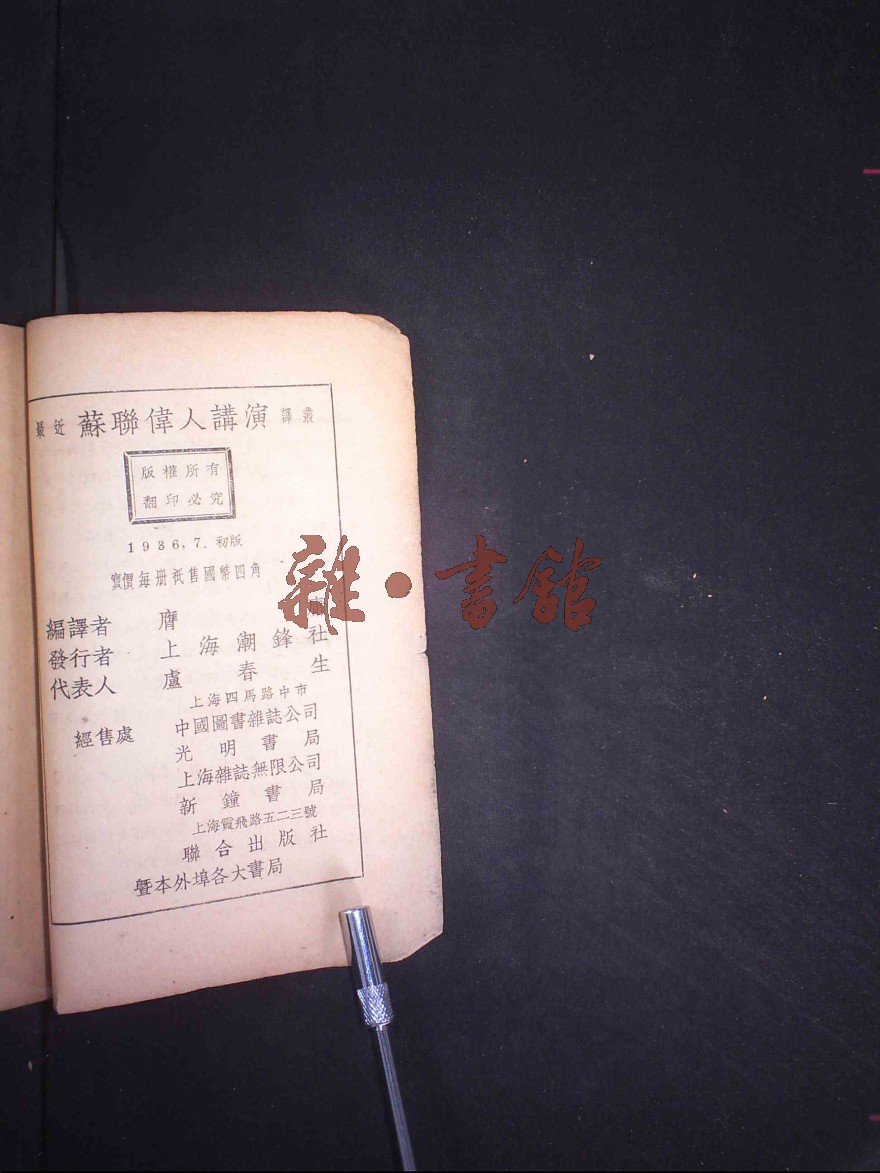 最近 蘇聯偉人講演 譯叢
版權所有
翻印必究
1936,7. 初版
實價每册衹售國幣四角
編譯者 膺
發行者 上海潮鋒社
代表人 盧春生
上海四馬路中市
經售處 中國圖書雜誌公司
光明書局
上海雜誌無限公司
新鐘書局
上海霞飛路五二三號
聯合出版社
暨本外埠各大書局
雜·書館